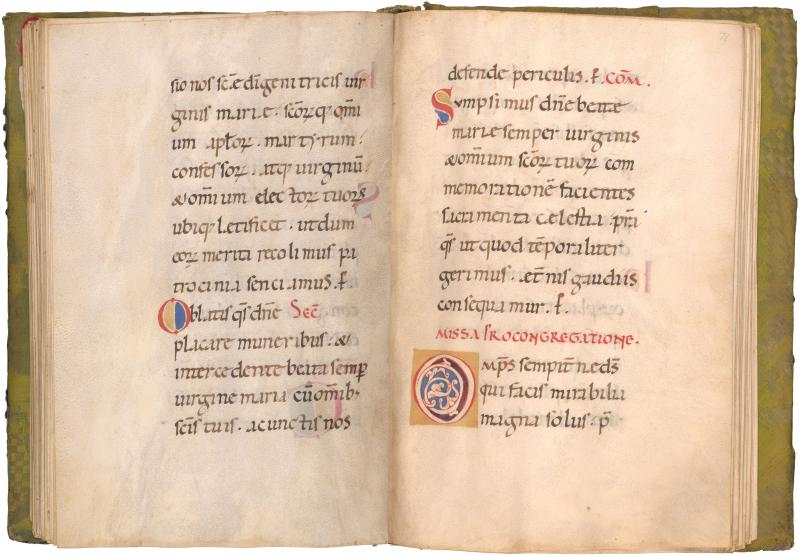 sio nos sc̄e dī genitricis uir
ginis marie · sc̄orꝝ q; om̄i
um apl̄orꝝ · martyrum ·
confessorꝝ · atq; uirginū ·
& om̄ium electorꝝ tuorꝝ
ubiq; letificet · ut dum
eorꝝ merita recolimus pa
trocinia senciamus · ꝑ
Oblatis q̄s dn̄e Sec̄
placare muneribus · &
intercedente beata semp̄
uirgine maria cū om̄ib;
sc̄is tuis · a cunctis nos
74
defende periculis · ꝑ · COM̄ .
Sumpsimus dn̄e beate
marie semper uirginis
& om̄ium sc̄orꝝ tuorꝝ com
memorationē facientes
sacramenta celestia · p̄ra
q̄s ut quod tēporaliter
gerimus · et̄nis gaudiis
consequamur · ꝑ ·
MISSA PRO CONGREGATIONE .
OMP̄S sempit̄ne ds̄
qui facis mirabilia
magna solus · p̄